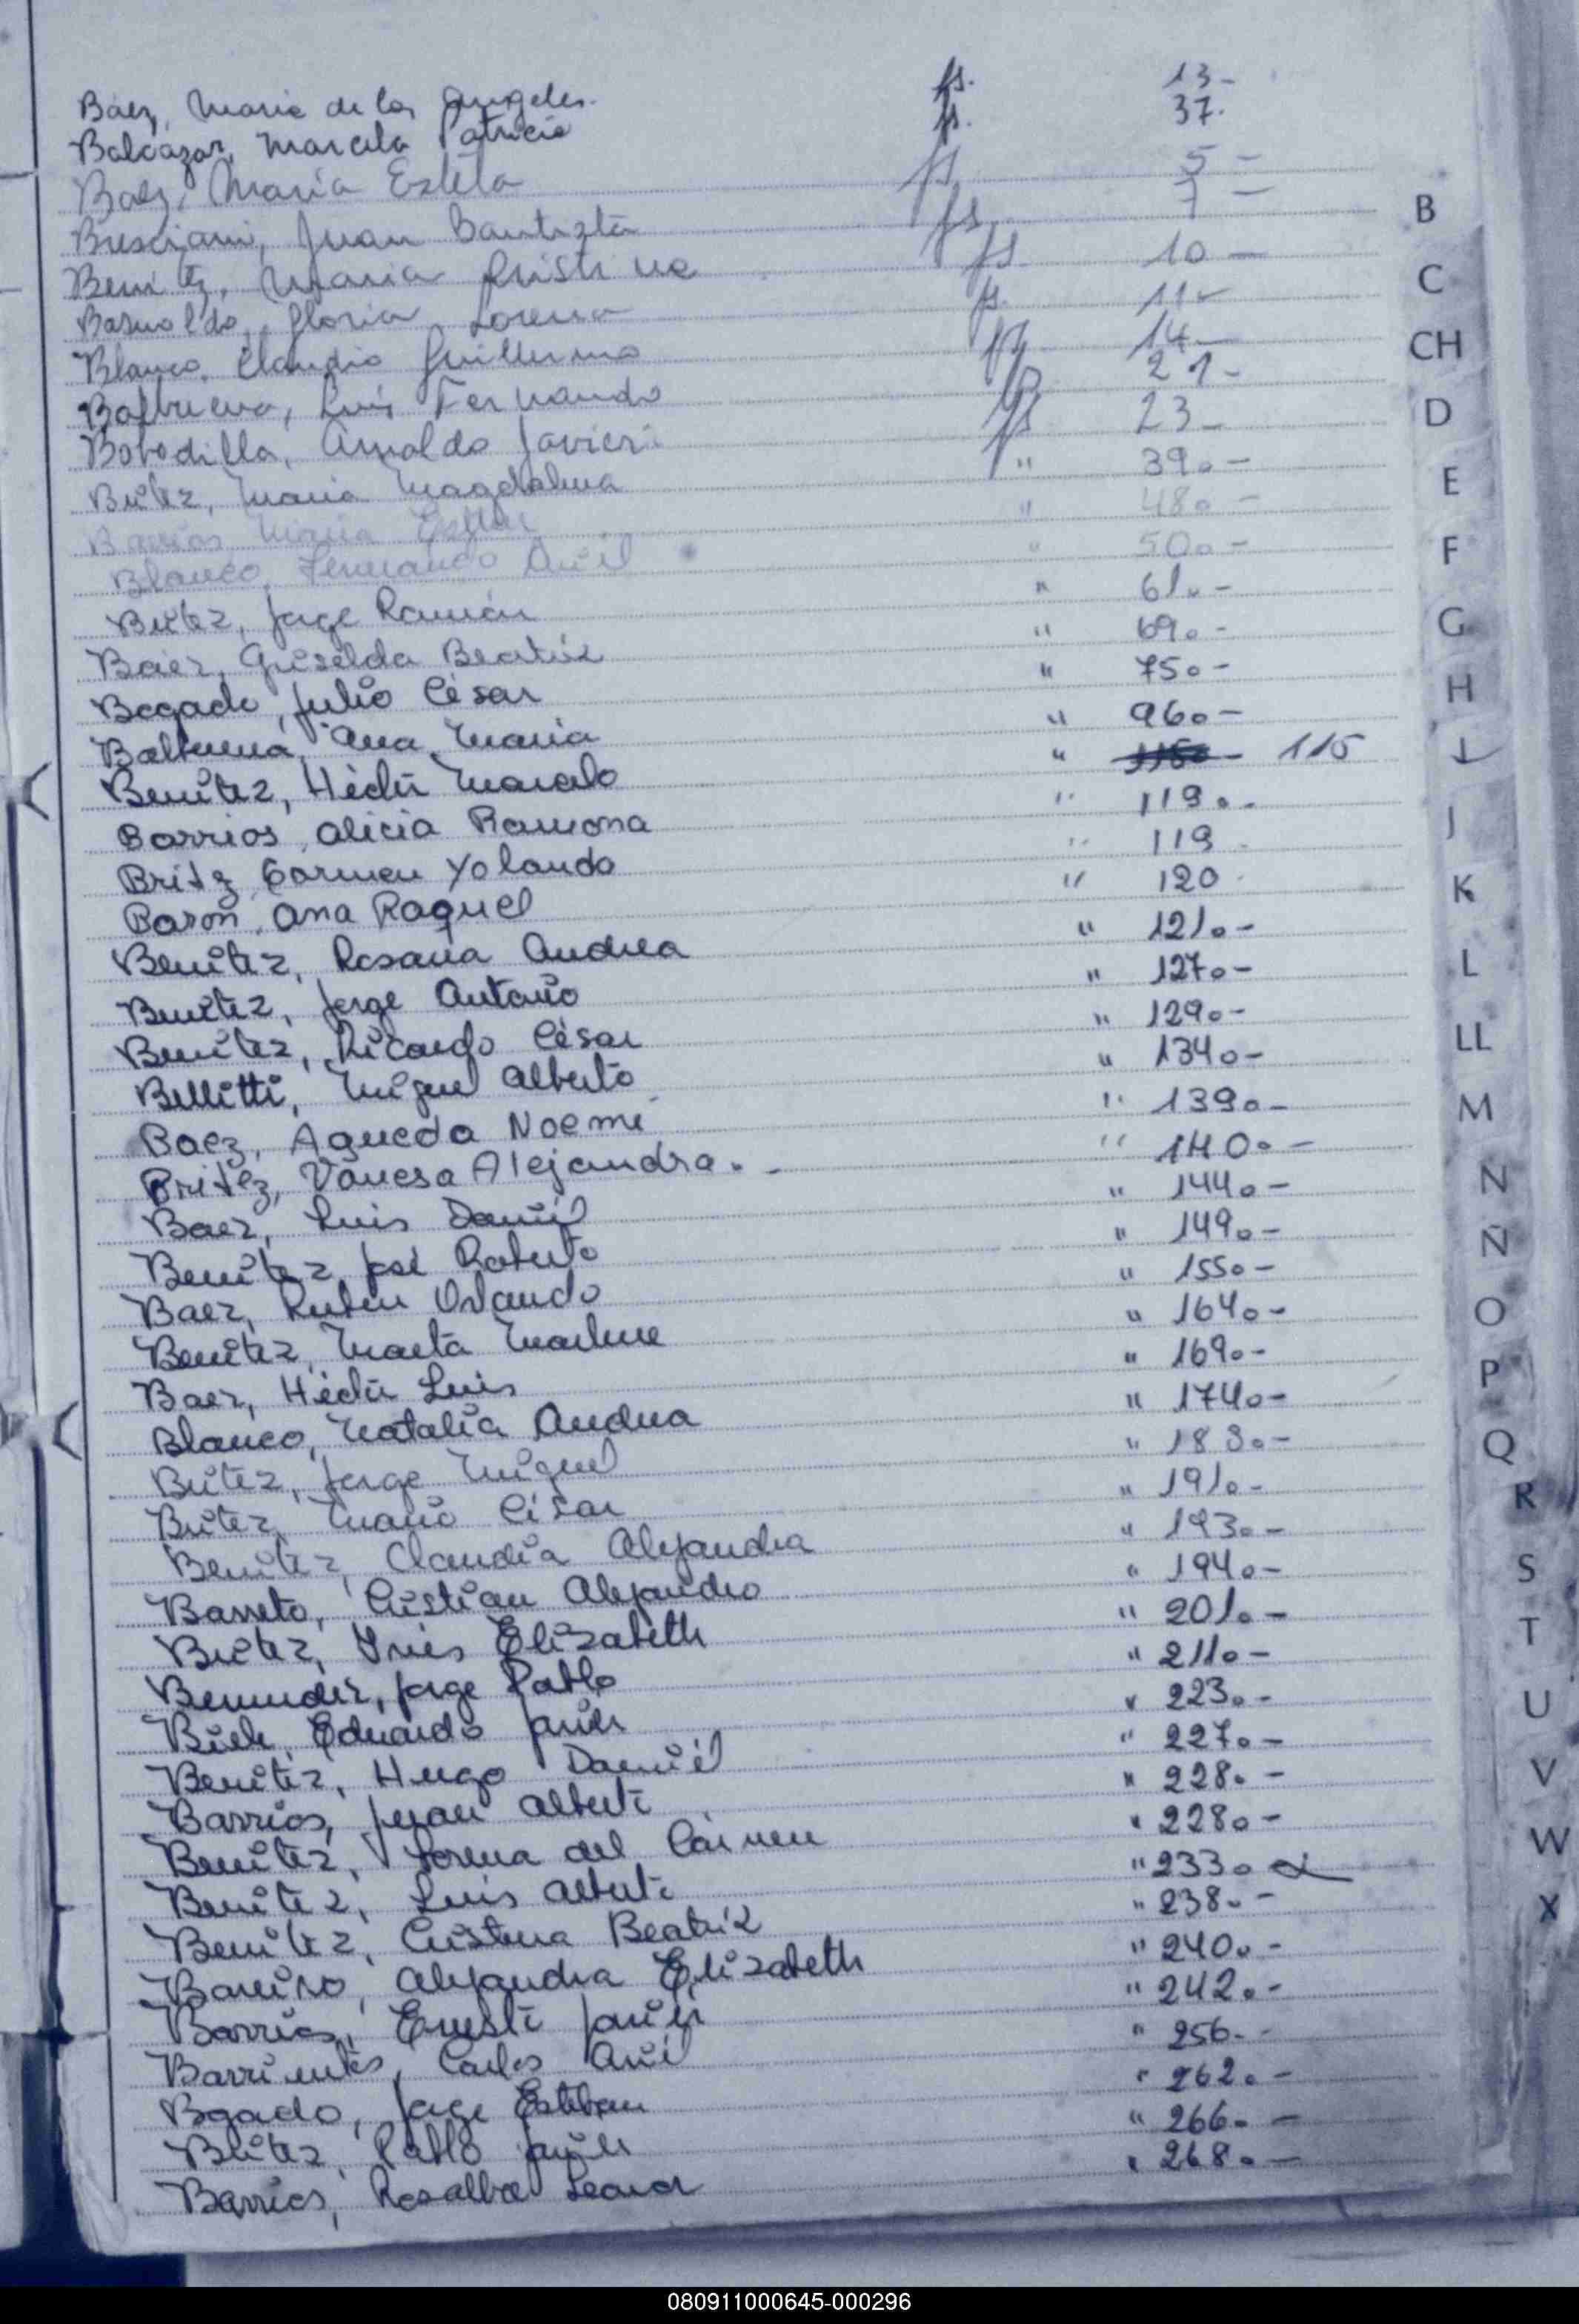 Baez, Maria de los Angeles. fs. 13-
Balcazar, Marcela Patricia fs. 37.
Baez, Maria Estela fs 5-
Bresciani, Juan Bautista fs 7-
Benitez, Maria Cristina fs. 10-
Basualdo, Gloria Lorena fs. 11-
Blanco, Claudio Guillermo fs 14-
Balbuena, Luis Fernando fs 21-
Bobadilla, Arnaldo Javier fs 23-
Britez, Maria Magdalena " 39.-
Barrios Maria Ester " 48.-
Blanco, Fernando Ariel " 50.-
Britez, Jorge Ramón " 61.-
Baez, Griselda Beatriz " 69.-
Bogado, Julio César " 75.-
Balbuena, Ana Maria " 96.-
Benitez, Héctor Marcelo " 115
Barrios, Alicia Ramona " 119.-
Britz, Carmen Yolanda " 119
Baron, Ana Raquel " 120
Benitez, Rosana Andrea " 121.-
Benitez, Jorge Antonio " 127.-
Benitez, Ricardo César " 129.-
Bellitti, Miguel Alberto " 134.-
Baez, Agueda Noemi " 139.-
Britez, Vanesa Alejandra.- " 140.-
Baez, Luis Daniel " 144.-
Benitez José Roberto " 149.-
Baez, Ruben Orlando " 155.-
Benitez, Marta Marlene " 164.-
Baez, Héctor Luis " 169.-
Blanco, Natalia Andrea " 174.-
Britez, Jorge Miguel " 183.-
Britez, Mario César " 191.-
Benitez, Claudia Alejandra " 193.-
Barreto, Cristian Alejandro " 194.-
Britez, Inés Elizabeth " 201.-
Bermudez, Jorge Pablo " 211.-
Eduardo Javier " 223.-
Benitez, Hugo Daniel " 227.-
Barrios, Juan Alberto " 228.-
Benitez, Lorena del Carmen " 228.-
Benitez, Luis Alberto " 233.
Benitez, Cristina Beatriz " 238.-
Barreiro, Alejandra Elizabeth " 240.-
Barrios, Ernesto Javier " 242.-
Barrientos, Carlos Ariel " 256.-
Bgado, Jorge Esteban " 262.-
Britez, Pablo Javier " 266.-
Barrios, Rosalba Leonor " 268.-
B
C
CH
D
E
F
G
H
I
J
K
L
LL
M
N
Ñ
O
P
Q
R
S
T
U
V
W
X
080911000645-000296